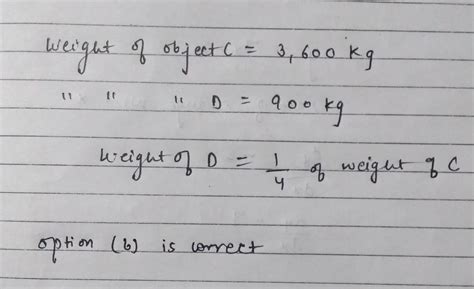 Weight of object C = 3,600 Kg
" " " D = 900 kg
Weight of D = 1/4 of weight of C
option (b) is correct